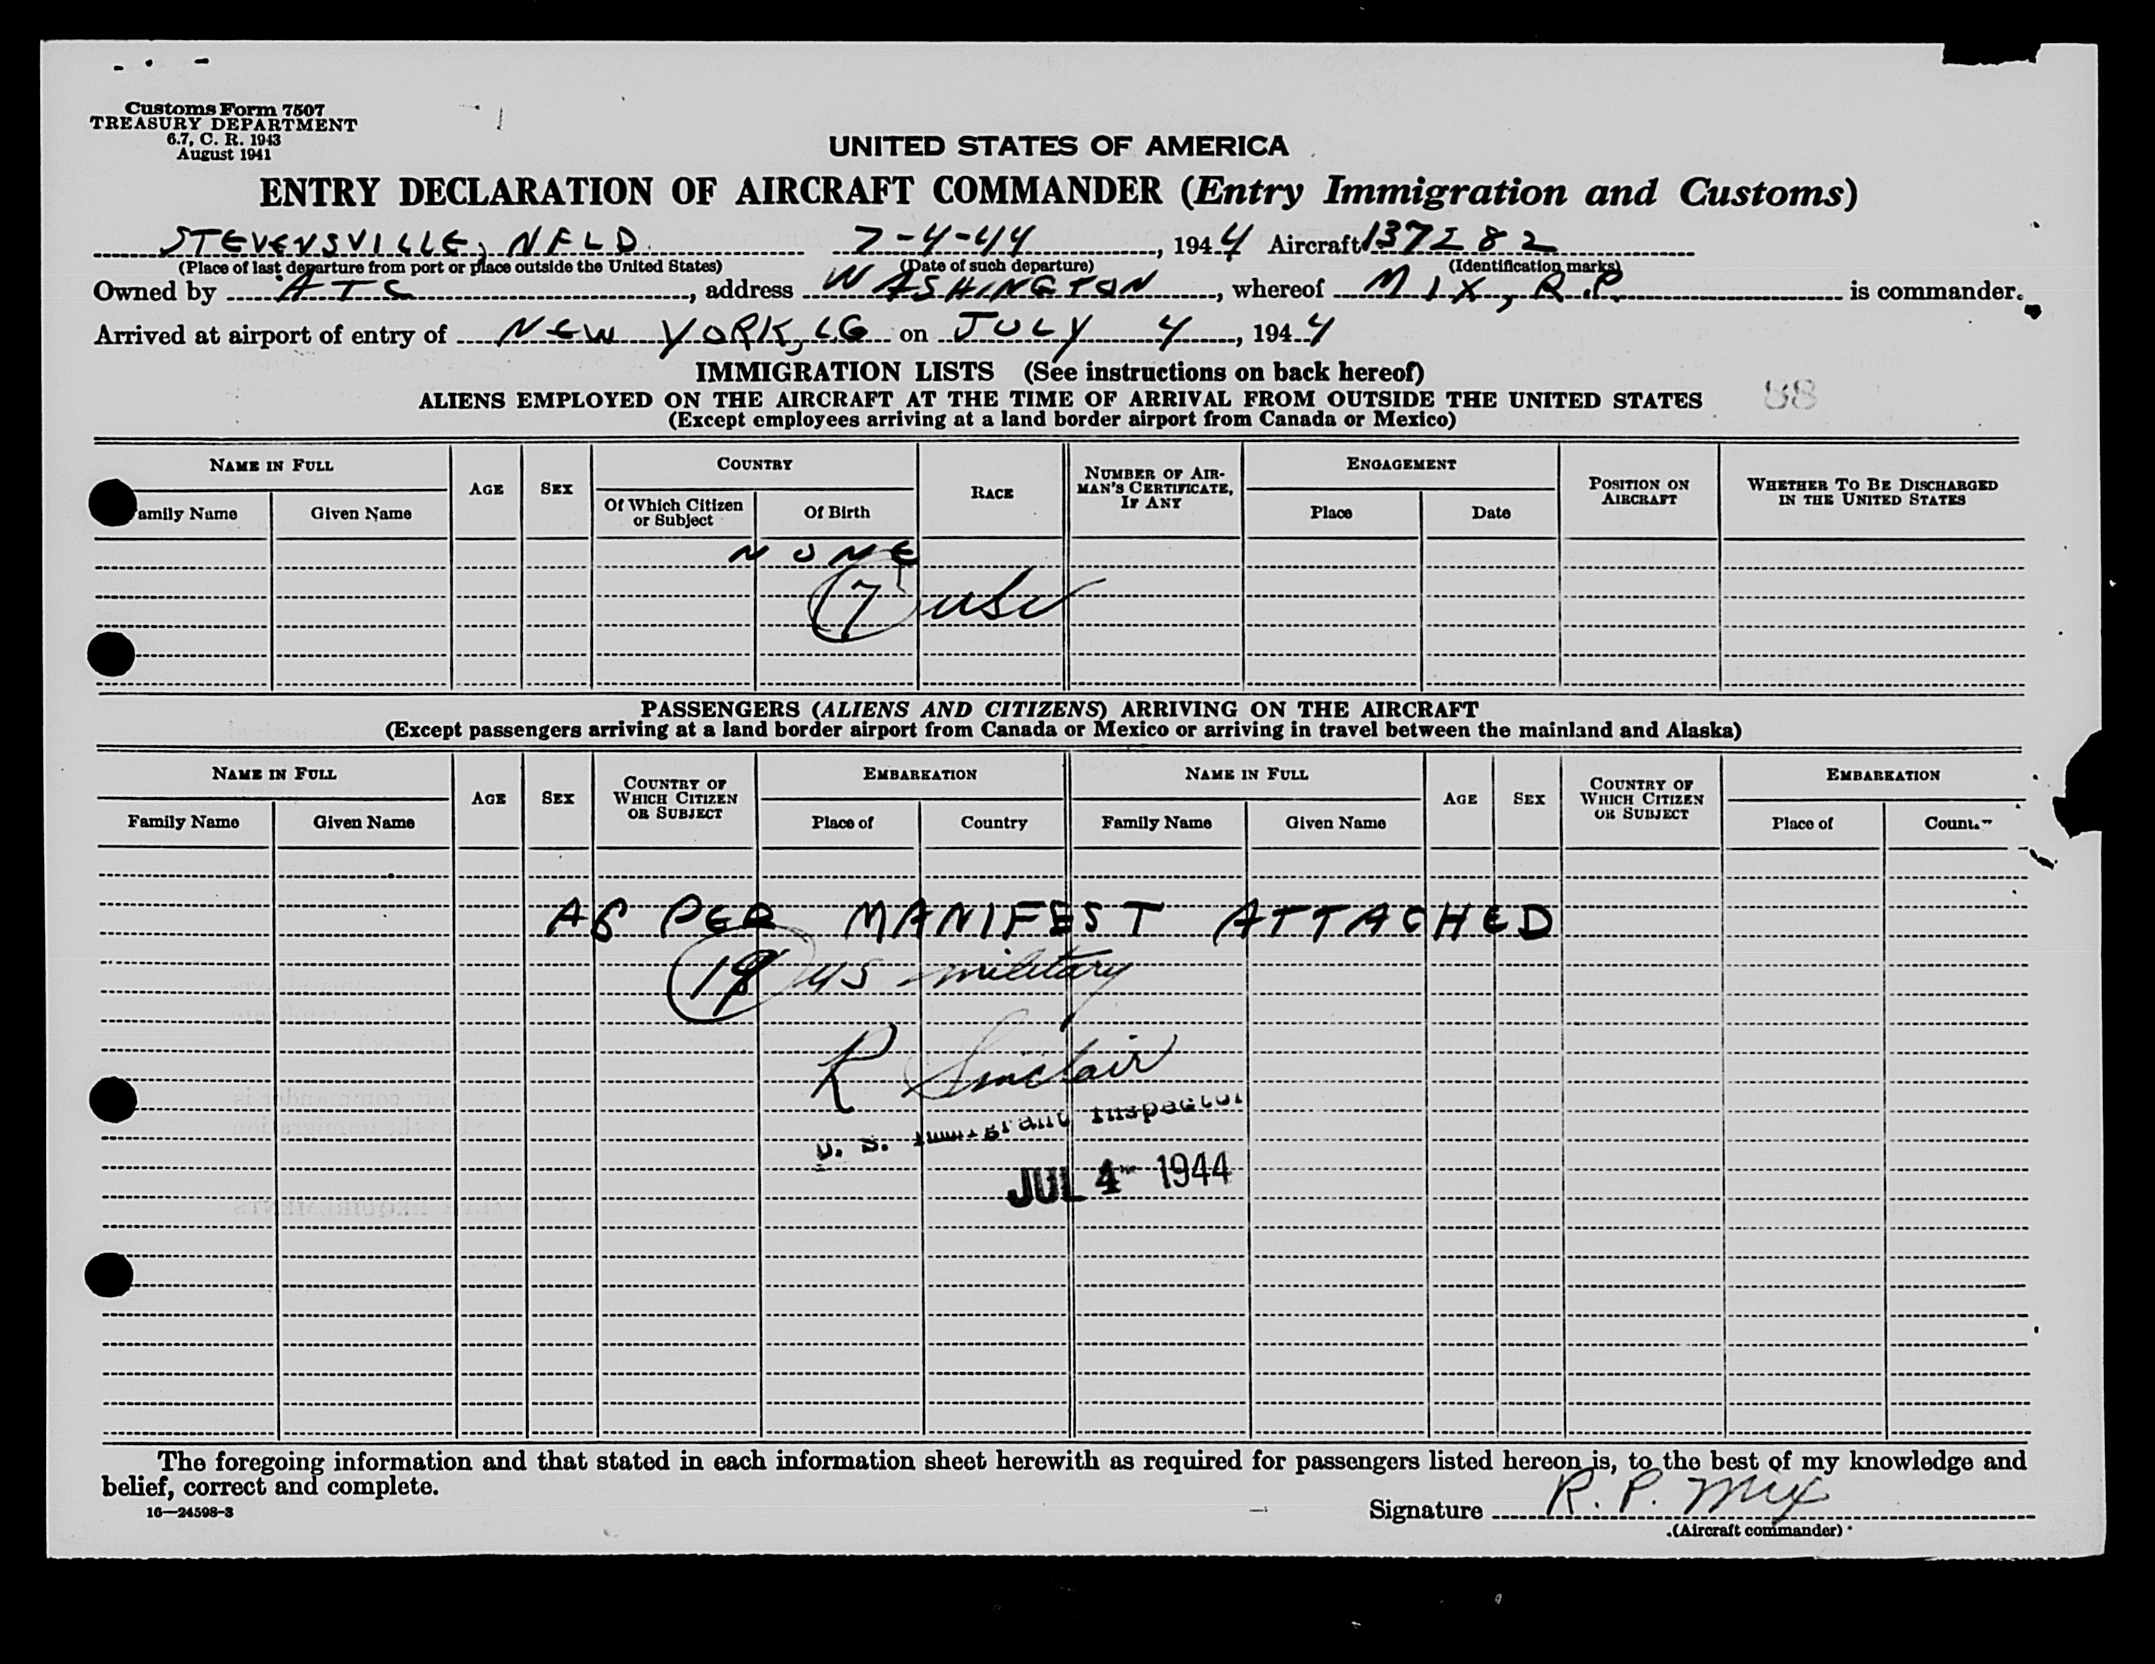 Customs Form 7507
TREASURY DEPARTMENT
6.7, C. R. 1943
August 1941
UNITED STATES OF AMERICA
ENTRY DECLARATION OF AIRCRAFT COMMANDER (Entry Immigration and Customs)
STEVENSVILLE, NFLD. 7-4-44, 1944 Aircraft 137282
(Place of last departure from port or place outside the United States) (Date of such departure) (Identification marks)
Owned by ATC, address WASHINGTON, whereof MIX, R.P. is commander.
Arrived at airport of entry of NEW YORK, LG on JULY 4, 1944
IMMIGRATION LISTS (See instructions on back hereof)
ALIENS EMPLOYED ON THE AIRCRAFT AT THE TIME OF ARRIVAL FROM OUTSIDE THE UNITED STATES 88
(Except employees arriving at a land border airport from Canada or Mexico)
NAME IN FULL AGE SEX COUNTRY RACE NUMBER OF AIRMAN'S CERTIFICATE, IF ANY ENGAGEMENT POSITION ON AIRCRAFT WHETHER TO BE DISCHARGED IN THE UNITED STATES
amily Name Given Name Of Which Citizen or Subject Of Birth Place Date
NONE
7 USC
PASSENGERS (ALIENS AND CITIZENS) ARRIVING ON THE AIRCRAFT
(Except passengers arriving at a land border airport from Canada or Mexico or arriving in travel between the mainland and Alaska)
NAME IN FULL AGE SEX COUNTRY OF WHICH CITIZEN OR SUBJECT EMBARKATION NAME IN FULL AGE SEX COUNTRY OF WHICH CITIZEN OR SUBJECT EMBARKATION
Family Name Given Name Place of Country Family Name Given Name Place of
AS PER MANIFEST ATTACHED
US military
R Sinclair
U. S. Immigrant Inspector
JUL 4 1944
The foregoing information and that stated in each information sheet herewith as required for passengers listed hereon is, to the best of my knowledge and
belief, correct and complete.
16—24598-3
Signature R. P. Mix
(Aircraft commander)